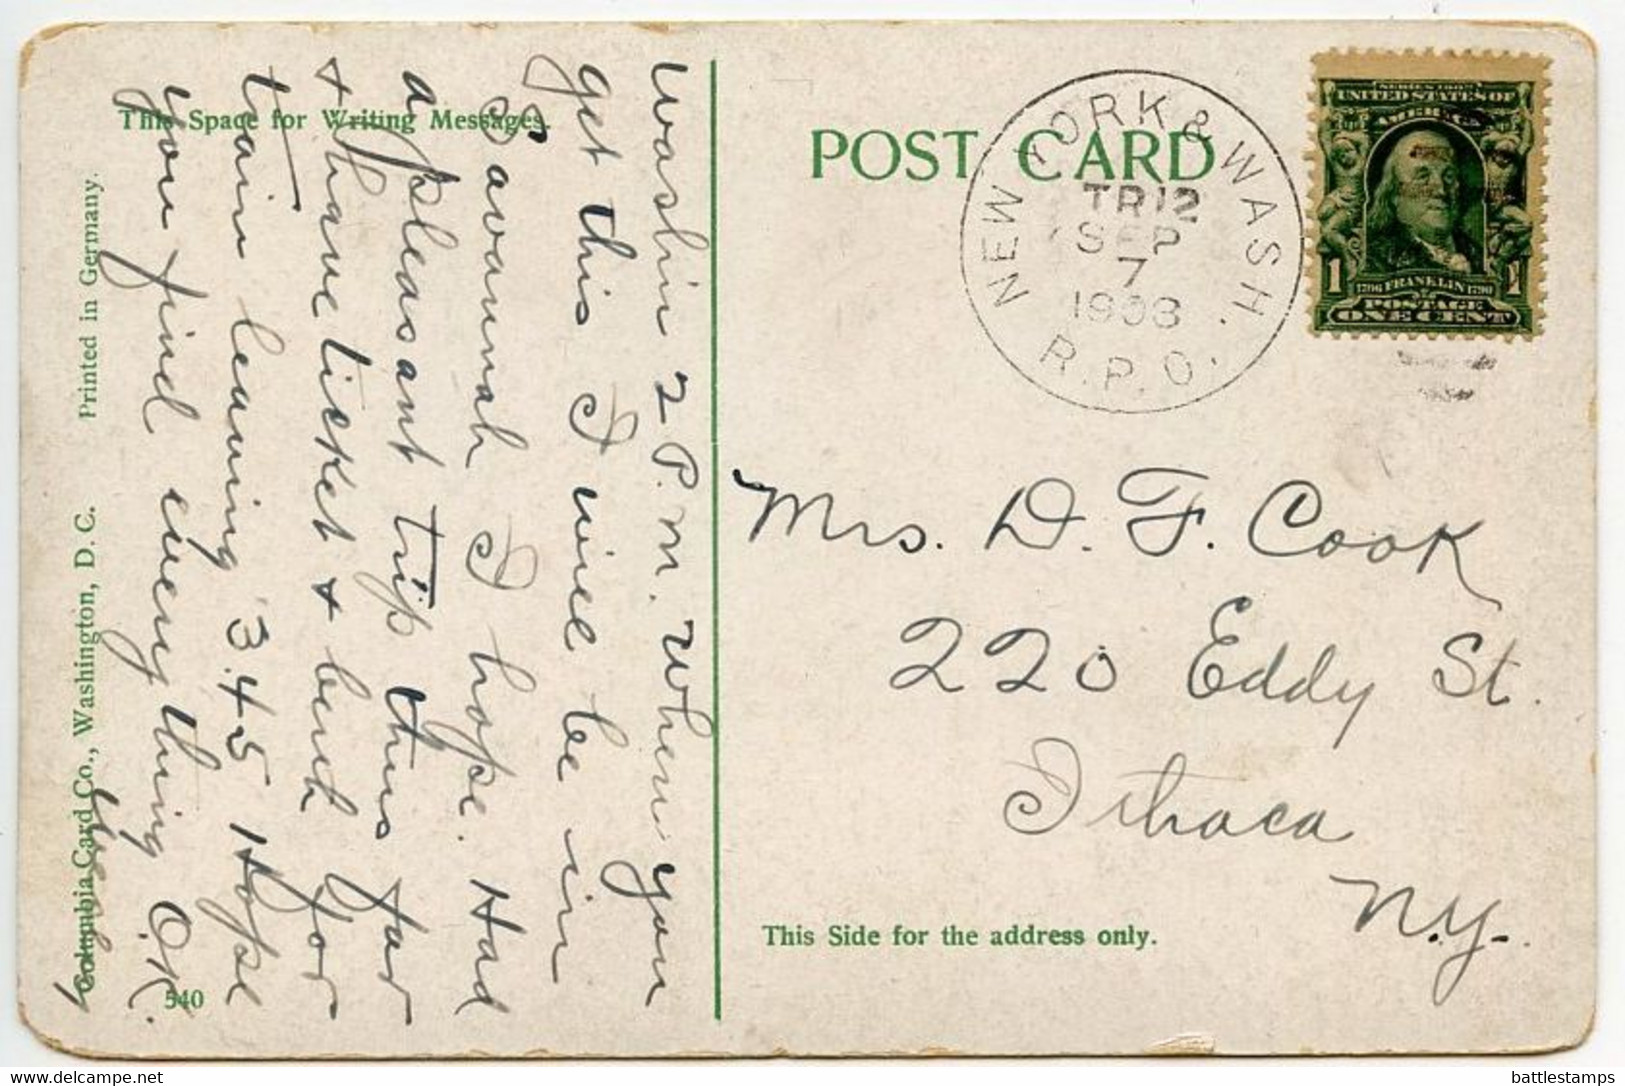 This Space for Writing Messages.
Washin 2 P.M. When you
get this I will be in
Savannah I hope. Had
a pleasant trip thus far
& have ticket & birth for
train leaving 3.45 Hope
you find everything O.K.
Printed in Germany.
Columbia Card Co., Washington, D. C.
540
POST CARD
NEW YORK & WASH.
TR 12
SEP
7
1908
R.P.O.
SERIES 1902
UNITED STATES OF
AMERICA
1 1
1706 FRANKLIN 1790
POSTAGE
ONE CENT
Mrs. D. F. Cook
220 Eddy St.
Ithaca
N.Y.
This Side for the address only.
www.delcampe.net
battlestamps